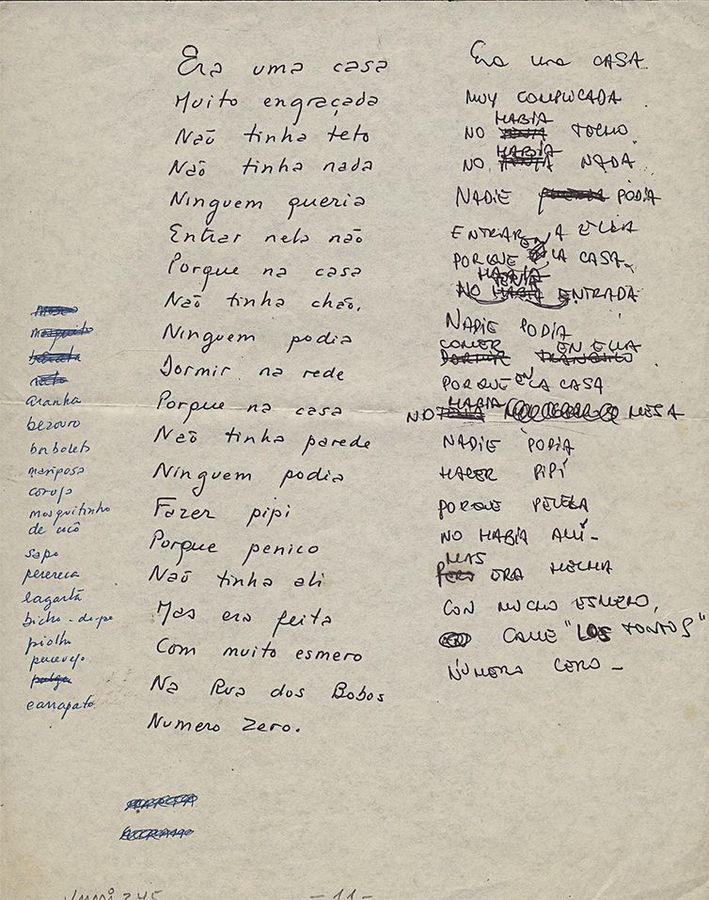 Era uma casa
Muito engraçada
Naõ tinha teto
Naõ tinha nada
Ninguem queria
Entrar nela não
Porque na casa
Naõ tinha chão.
Ninguem podia
Dormir na rede
Porque na casa
Naõ tinha parede
Ninguem podia
Fazer pipi
Porque penico
Naõ tinha ali
Mas era feita
Com muito esmero
Na Rua dos Bobos
Numero Zero.
Era una CASA
MUY COMPLICADA
NO HABIA TECHO
NO HABIA NADA
NADIE PODIA
ENTRAR A ELLA
PORQUE EN LA CASA
NO HABIA ENTRADA
NADIE PODIA
COMER EN ELLA
PORQUE EN LA CASA
NO HABIA MESA
NADIE PODIA
HACER PIPÍ
PORQUE PELELA
NO HABIA ALLÍ -
MAS ERA HECHA
CON MUCHO ESMERO,
CALLE "LOS TONTOS"
NUMERA CERO -
mosquito
barata
rato
aranha
bezouro
borboleta
mariposa
coruja
mosquitinho
de cocô
sapo
perereca
lagarta
bicho-de-pe
piolho
percevejo
pulga
carrapato
- 11 -